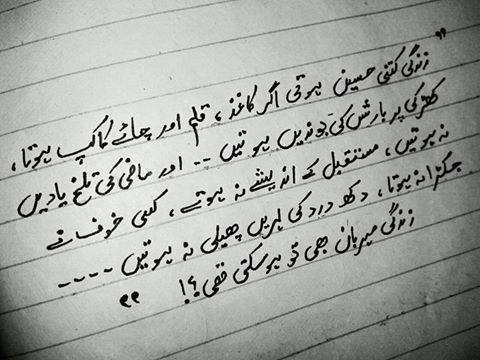 "زندگی کتنی حسین ہوتی اگر کاغذ، قلم اور چائے کا کپ ہوتا،
کھڑکی پر بارش کی بوندیں ہوتیں -- اور ماضی کی تلخ یادیں
نہ ہوتیں، مستقبل کے اندیشے نہ ہوتے، کسی خوف نے
جکڑا نہ ہوتا، دکھ درد کی لہریں پھیلی نہ ہوتیں ----
زندگی مہربان بھی تو ہو سکتی تھی؟! "